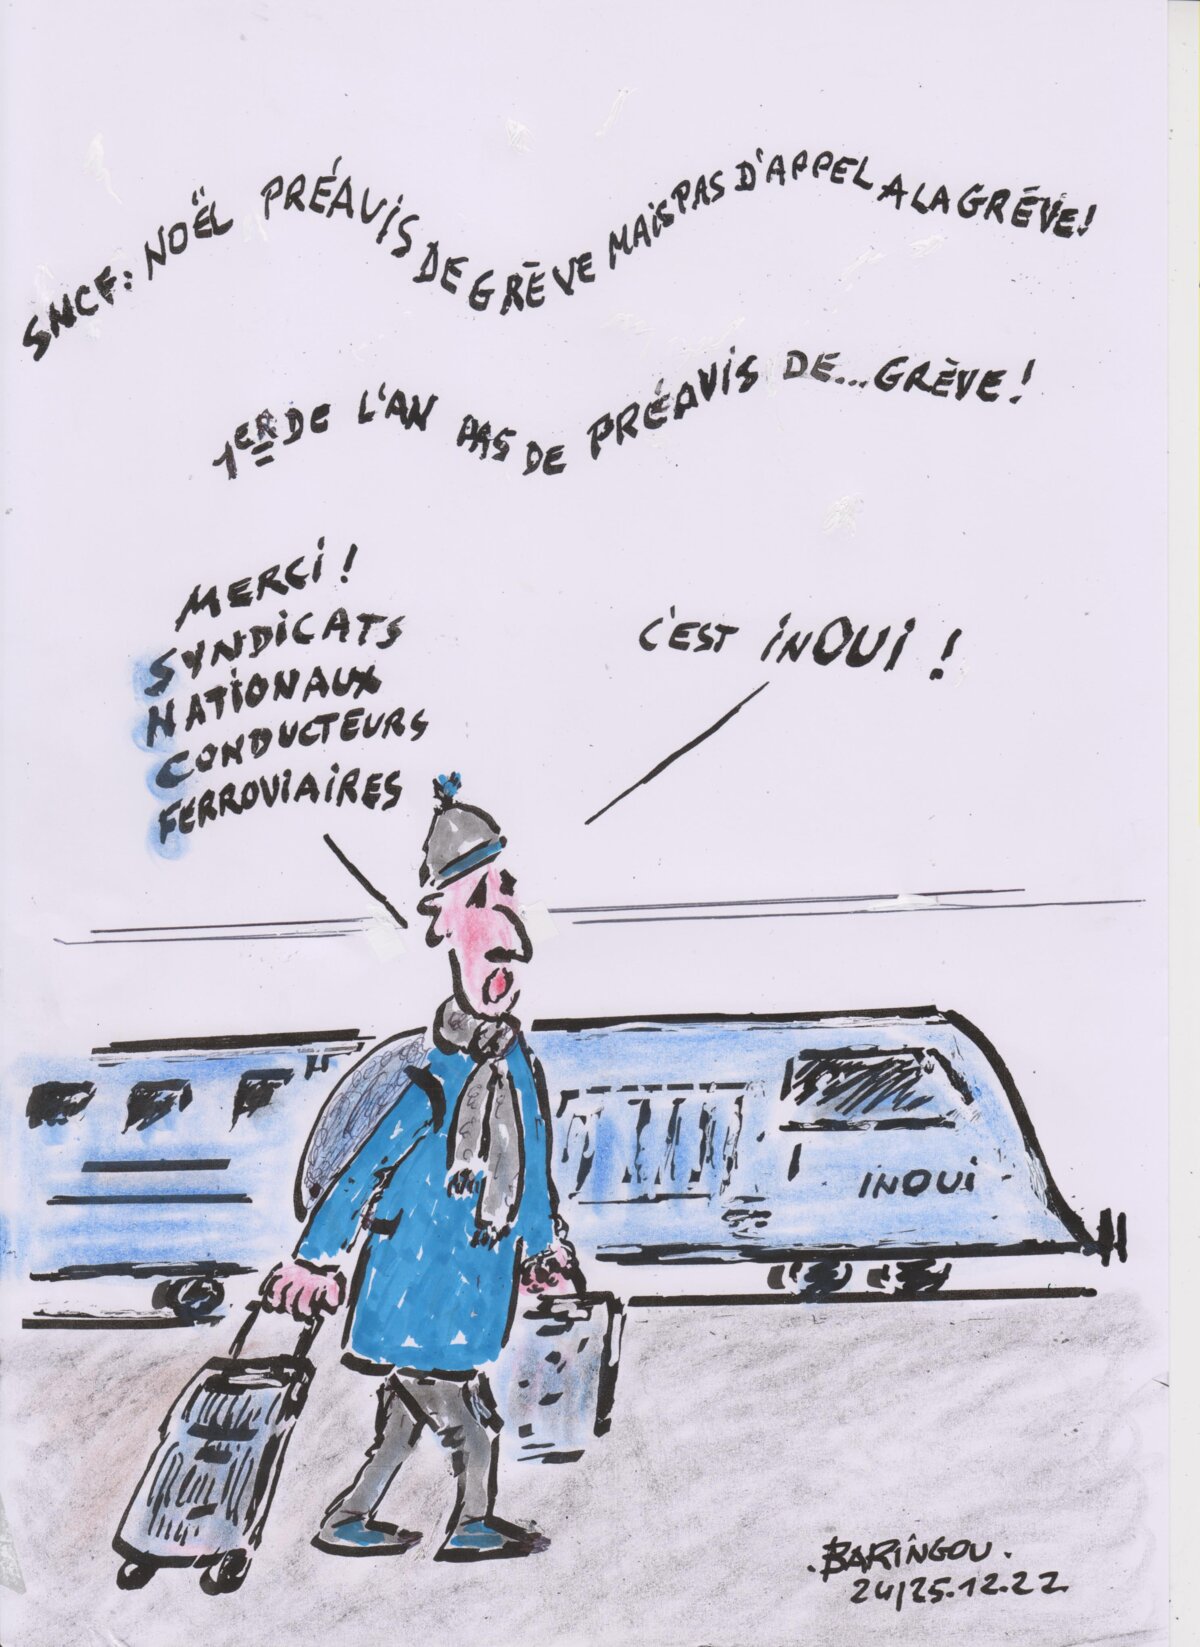 SNCF: NOËL PRÉAVIS DE GRÈVE MAIS PAS D'APPEL A LA GRÈVE!
1ER DE L'AN PAS DE PRÉAVIS DE...GRÈVE!
MERCI!
SYNDICATS
NATIONAUX
CONDUCTEURS
FERROVIAIRES
C'EST inOUI!
INOUI
.BARINGOU.
24/25.12.22